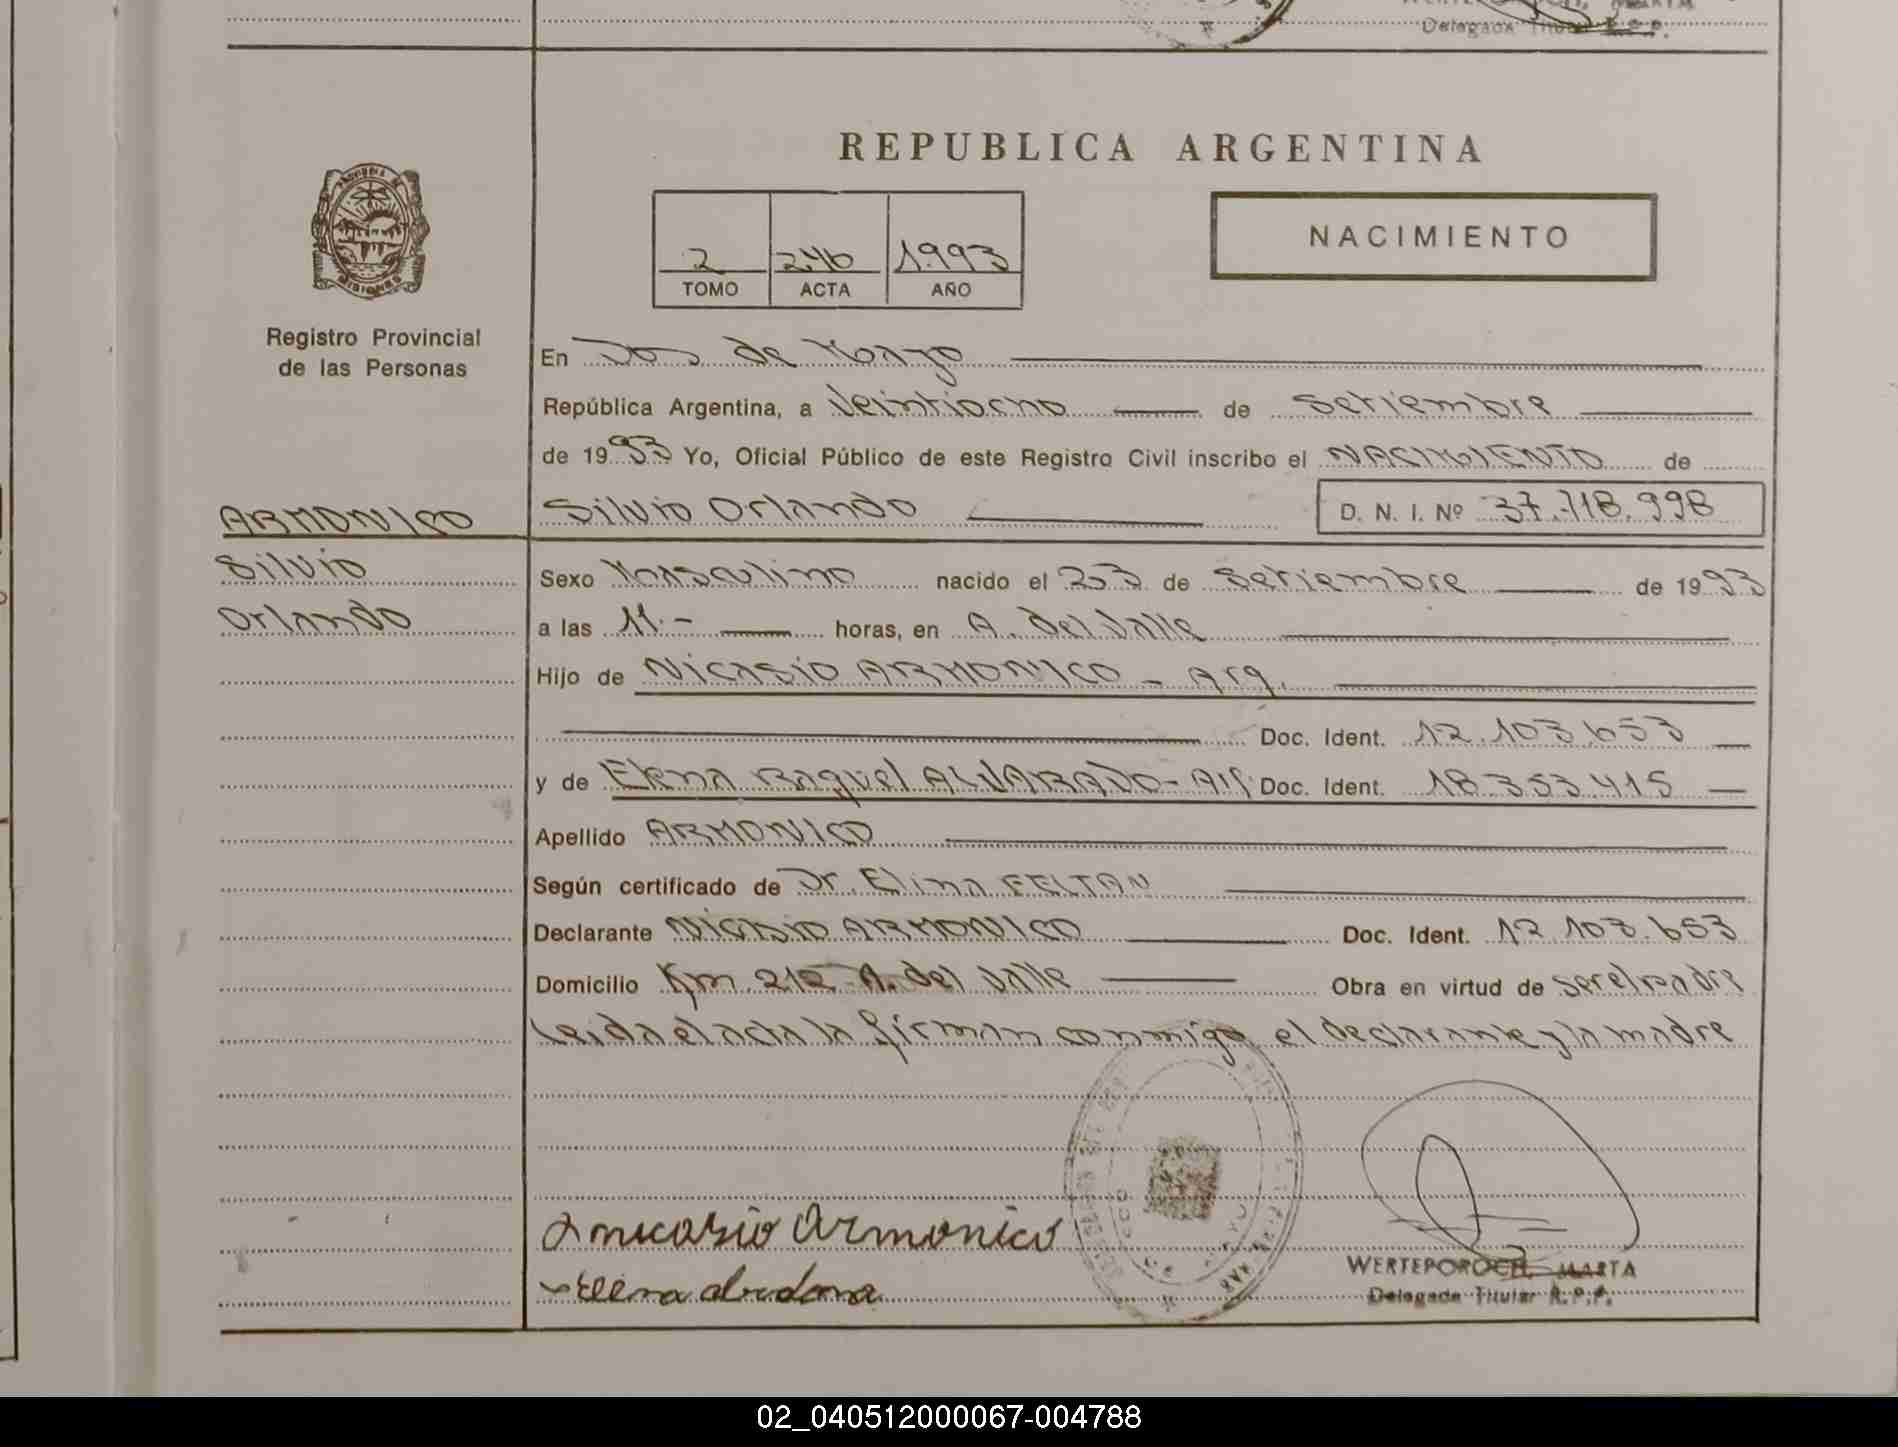 Delegada Titular R.P.P.
REPUBLICA ARGENTINA
NACIMIENTO
2 246 1993
TOMO ACTA AÑO
Registro Provincial
de las Personas
En Dos de Mayo
República Argentina, a Veintiocho de Setiembre
de 1993 Yo, Oficial Público de este Registro Civil inscribo el NACIMIENTO de
ARMONICO
Silvio Orlando D. N. I. Nº 37.718.998
Silvio
Orlando
Sexo Masculino nacido el 23 de Setiembre de 1993
a las 11.- horas, en A. del Valle
Hijo de Nicasio ARMONICO - Arg.
Doc. Ident. 12.103.653
y de Elena Raquel ALVARADO - Arg. Doc. Ident. 18.353.415
Apellido ARMONICO
Según certificado de Dr. Elina FELTAN
Declarante Nicasio ARMONICO Doc. Ident. 12.103.653
Domicilio Km 212 A. del Valle Obra en virtud de ser el padre
Leida el acta la firman conmigo el declarante y la madre
Armonico
Elena
WERTEPOROCH, MARTA
Delegada Titular R.P.P.
02_040512000067-004788